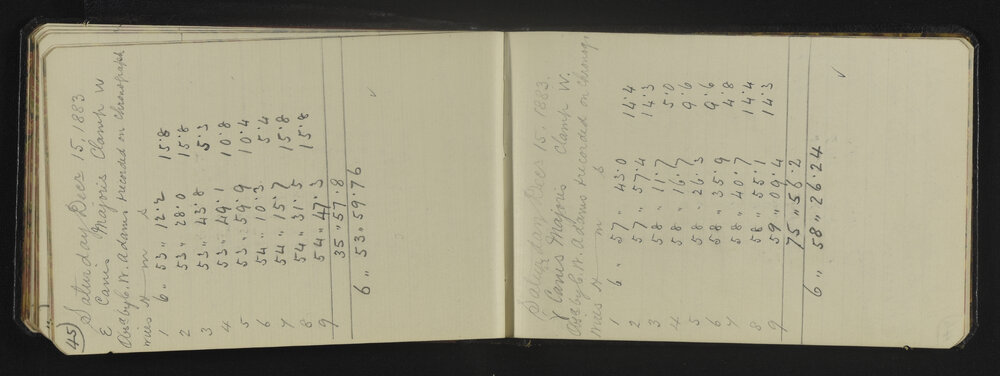 45
Saturday Decr 15, 1883
E Canis Majoris Clamp W
Obs by C. W. Adams & recorded on Chronograph
Wires H m s
1 6 " 53 " 12.2 15.8
2 53 " 28.0 15.8
3 53 " 43.8 5.3
4 53 " 49.1 10.8
5 53 " 59.9 10.4
6 54 " 10.3 5.4
7 54 " 15.7 15.8
8 54 " 31.5 15.8
9 54 " 47.3
9 35 " 57.8
6 " 53 " 59.76
✓
Saturday Decr 15. 1883.
γ Canis Majoris Clamp W.
Obs by C. W. Adams & recorded on Chronog.
Wires H m s
1 6 " 57 " 43.0 14.4
2 57 " 57.4 14.3
3 58 " 11.7 5.0
4 58 " 16.7 9.6
5 58 " 26.3 9.6
6 58 " 35.9 4.8
7 58 " 40.7 14.4
8 58 " 55.1 14.3
9 59 " 09.4
9 75 " 56.2
6 " 58 " 26.24
✓